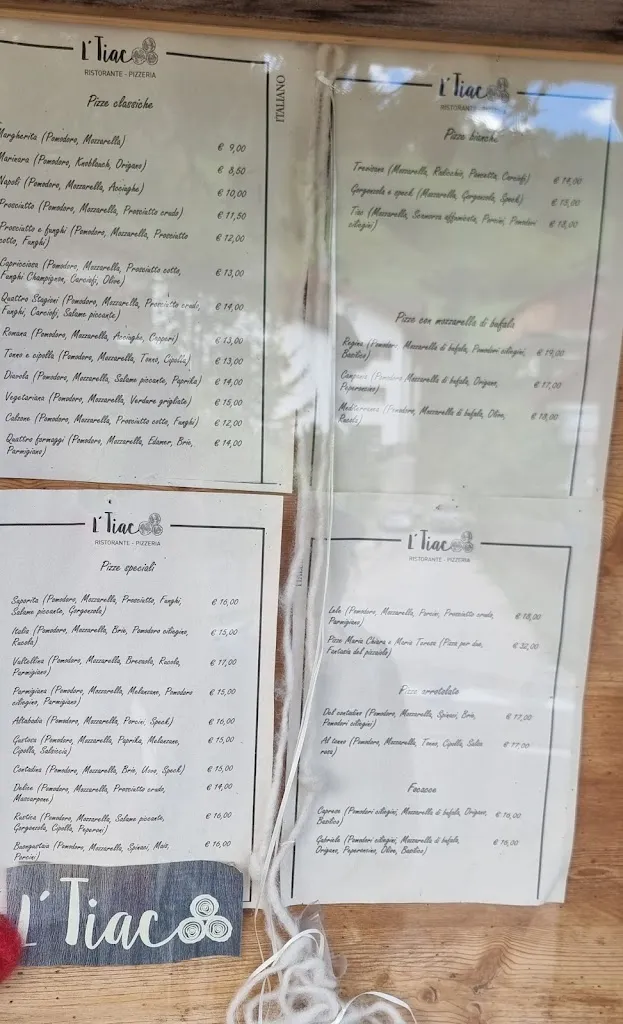 L'Tiac
RISTORANTE - PIZZERIA
Pizze classiche
Margherita (Pomodoro, Mozzarella) € 9,00
Marinara (Pomodoro, Knoblauch, Origano) € 8,50
Napoli (Pomodoro, Mozzarella, Acciaghe) € 10,00
Prosciutto (Pomodoro, Mozzarella, Prosciutto crudo) € 11,50
Prosciutto e funghi (Pomodoro, Mozzarella, Prosciutto
cotto, Funghi) € 12,00
Capricciosa (Pomodoro, Mozzarella, Prosciutto cotto,
Funghi Champignon, Carciofi, Olive) € 13,00
Quattro Stagioni (Pomodoro, Mozzarella, Prosciutto crudo,
Funghi, Carciofi, Salame piccante) € 14,00
Romana (Pomodoro, Mozzarella, Acciaghe, Capperi) € 13,00
Tonno e cipolla (Pomodoro, Mozzarella, Tonno, Cipolla) € 13,00
Diavola (Pomodoro, Mozzarella, Salame piccante, Paprika) € 14,00
Vegetariana (Pomodoro, Mozzarella, Verdure grigliate) € 15,00
Calzone (Pomodoro, Mozzarella, Prosciutto cotto, Funghi) € 12,00
Quattro formaggi (Pomodoro, Mozzarella, Edamer, Brie,
Parmigiano) € 14,00
ITALIANO
L'Tiac
RISTORANTE - PIZZERIA
Pizze bianche
Trevisana (Mozzarella, Radicchio, Pancetta, Carciofi) € 14,00
Gorgonzola e speck (Mozzarella, Gorgonzola, Speck) € 15,00
Tiac (Mozzarella, Scamorza affumicata, Porcini, Pomodori
ciliegini) € 18,00
Pizza con mozzarella di bufala
Regina (Pomodoro, Mozzarella di bufala, Pomodori ciliegini,
Basilico) € 19,00
Campana (Pomodoro, Mozzarella di bufala, Origano,
Peperoncino) € 17,00
Mediterranea (Pomodoro, Mozzarella di bufala, Olive,
Rucola) € 18,00
L'Tiac
RISTORANTE - PIZZERIA
Pizze speciali
Saporita (Pomodoro, Mozzarella, Prosciutto, Funghi,
Salame piccante, Gorgonzola) € 16,00
Italia (Pomodoro, Mozzarella, Brie, Pomodoro ciliegino,
Rucola) € 15,00
Valtellina (Pomodoro, Mozzarella, Bresaola, Rucola,
Parmigiano) € 17,00
Parmigiana (Pomodoro, Mozzarella, Melanzane, Pomodoro
ciliegino, Parmigiano) € 15,00
Altabadia (Pomodoro, Mozzarella, Porcini, Speck) € 16,00
Gustosa (Pomodoro, Mozzarella, Paprika, Melanzane,
Cipolla, Salsiccia) € 15,00
Contadina (Pomodoro, Mozzarella, Brie, Uovo, Speck) € 15,00
Delice (Pomodoro, Mozzarella, Prosciutto crudo,
Mascarpone) € 14,00
Rustica (Pomodoro, Mozzarella, Salame piccante,
Gorgonzola, Cipolla, Peperoni) € 16,00
Buongustaio (Pomodoro, Mozzarella, Spinaci, Mais,
Porcini) € 16,00
L'Tiac
L'Tiac
RISTORANTE - PIZZERIA
Lele (Pomodoro, Mozzarella, Porcin, Prosciutto crudo,
Parmigiano) € 18,00
Pizze Maria Chiara e Maria Teresa (Pizza per due,
Fantasia del pizzaiolo) € 32,00
Pizze arrotolate
Del contadino (Pomodoro, Mozzarella, Spinaci, Brie,
Pomodori ciliegini) € 17,00
Al tonno (Pomodoro, Mozzarella, Tonno, Cipolla, Salsa
rosa) € 17,00
Focacce
Caprese (Pomodori ciliegini, Mozzarella di bufala, Origano,
Basilico) € 16,00
Gabriele (Pomodori ciliegini, Mozzarella di bufala,
Origano, Peperoncino, Olive, Basilico) € 16,00